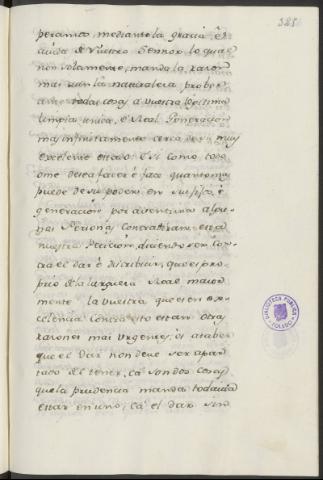 328
peramos, mediante la gracia, é
aiuda de Nuestro Sennor, lo qual
non solamente, manda la razon
mas aun la naturaleza, probeer
ante todas cosas, a vuestra legitima
limpia, unica, é Real Generacion
mas infinitamente cerca de su muy
excelente estado. E si como todo
ome desea facer é face quanto mas
puede de su poder en su fijo, é
generacion por aventura algu-
nas Personas contradiran esta
nuestra Peticion, diciendo ser con-
tra el dar é distribuir, que es pro-
prio de la largueza Real maior-
mente la Vuestra que es en ex-
celencia. Contra esto estan otras
razones mas urgentes, es a saber
que el Dar non deve ser apar-
tado del tener, ca son dos cosas
que la prudencia manda todavia
estar en uno, ca el dar sin
BIBLIOTECA PUBLICA
TOLEDO